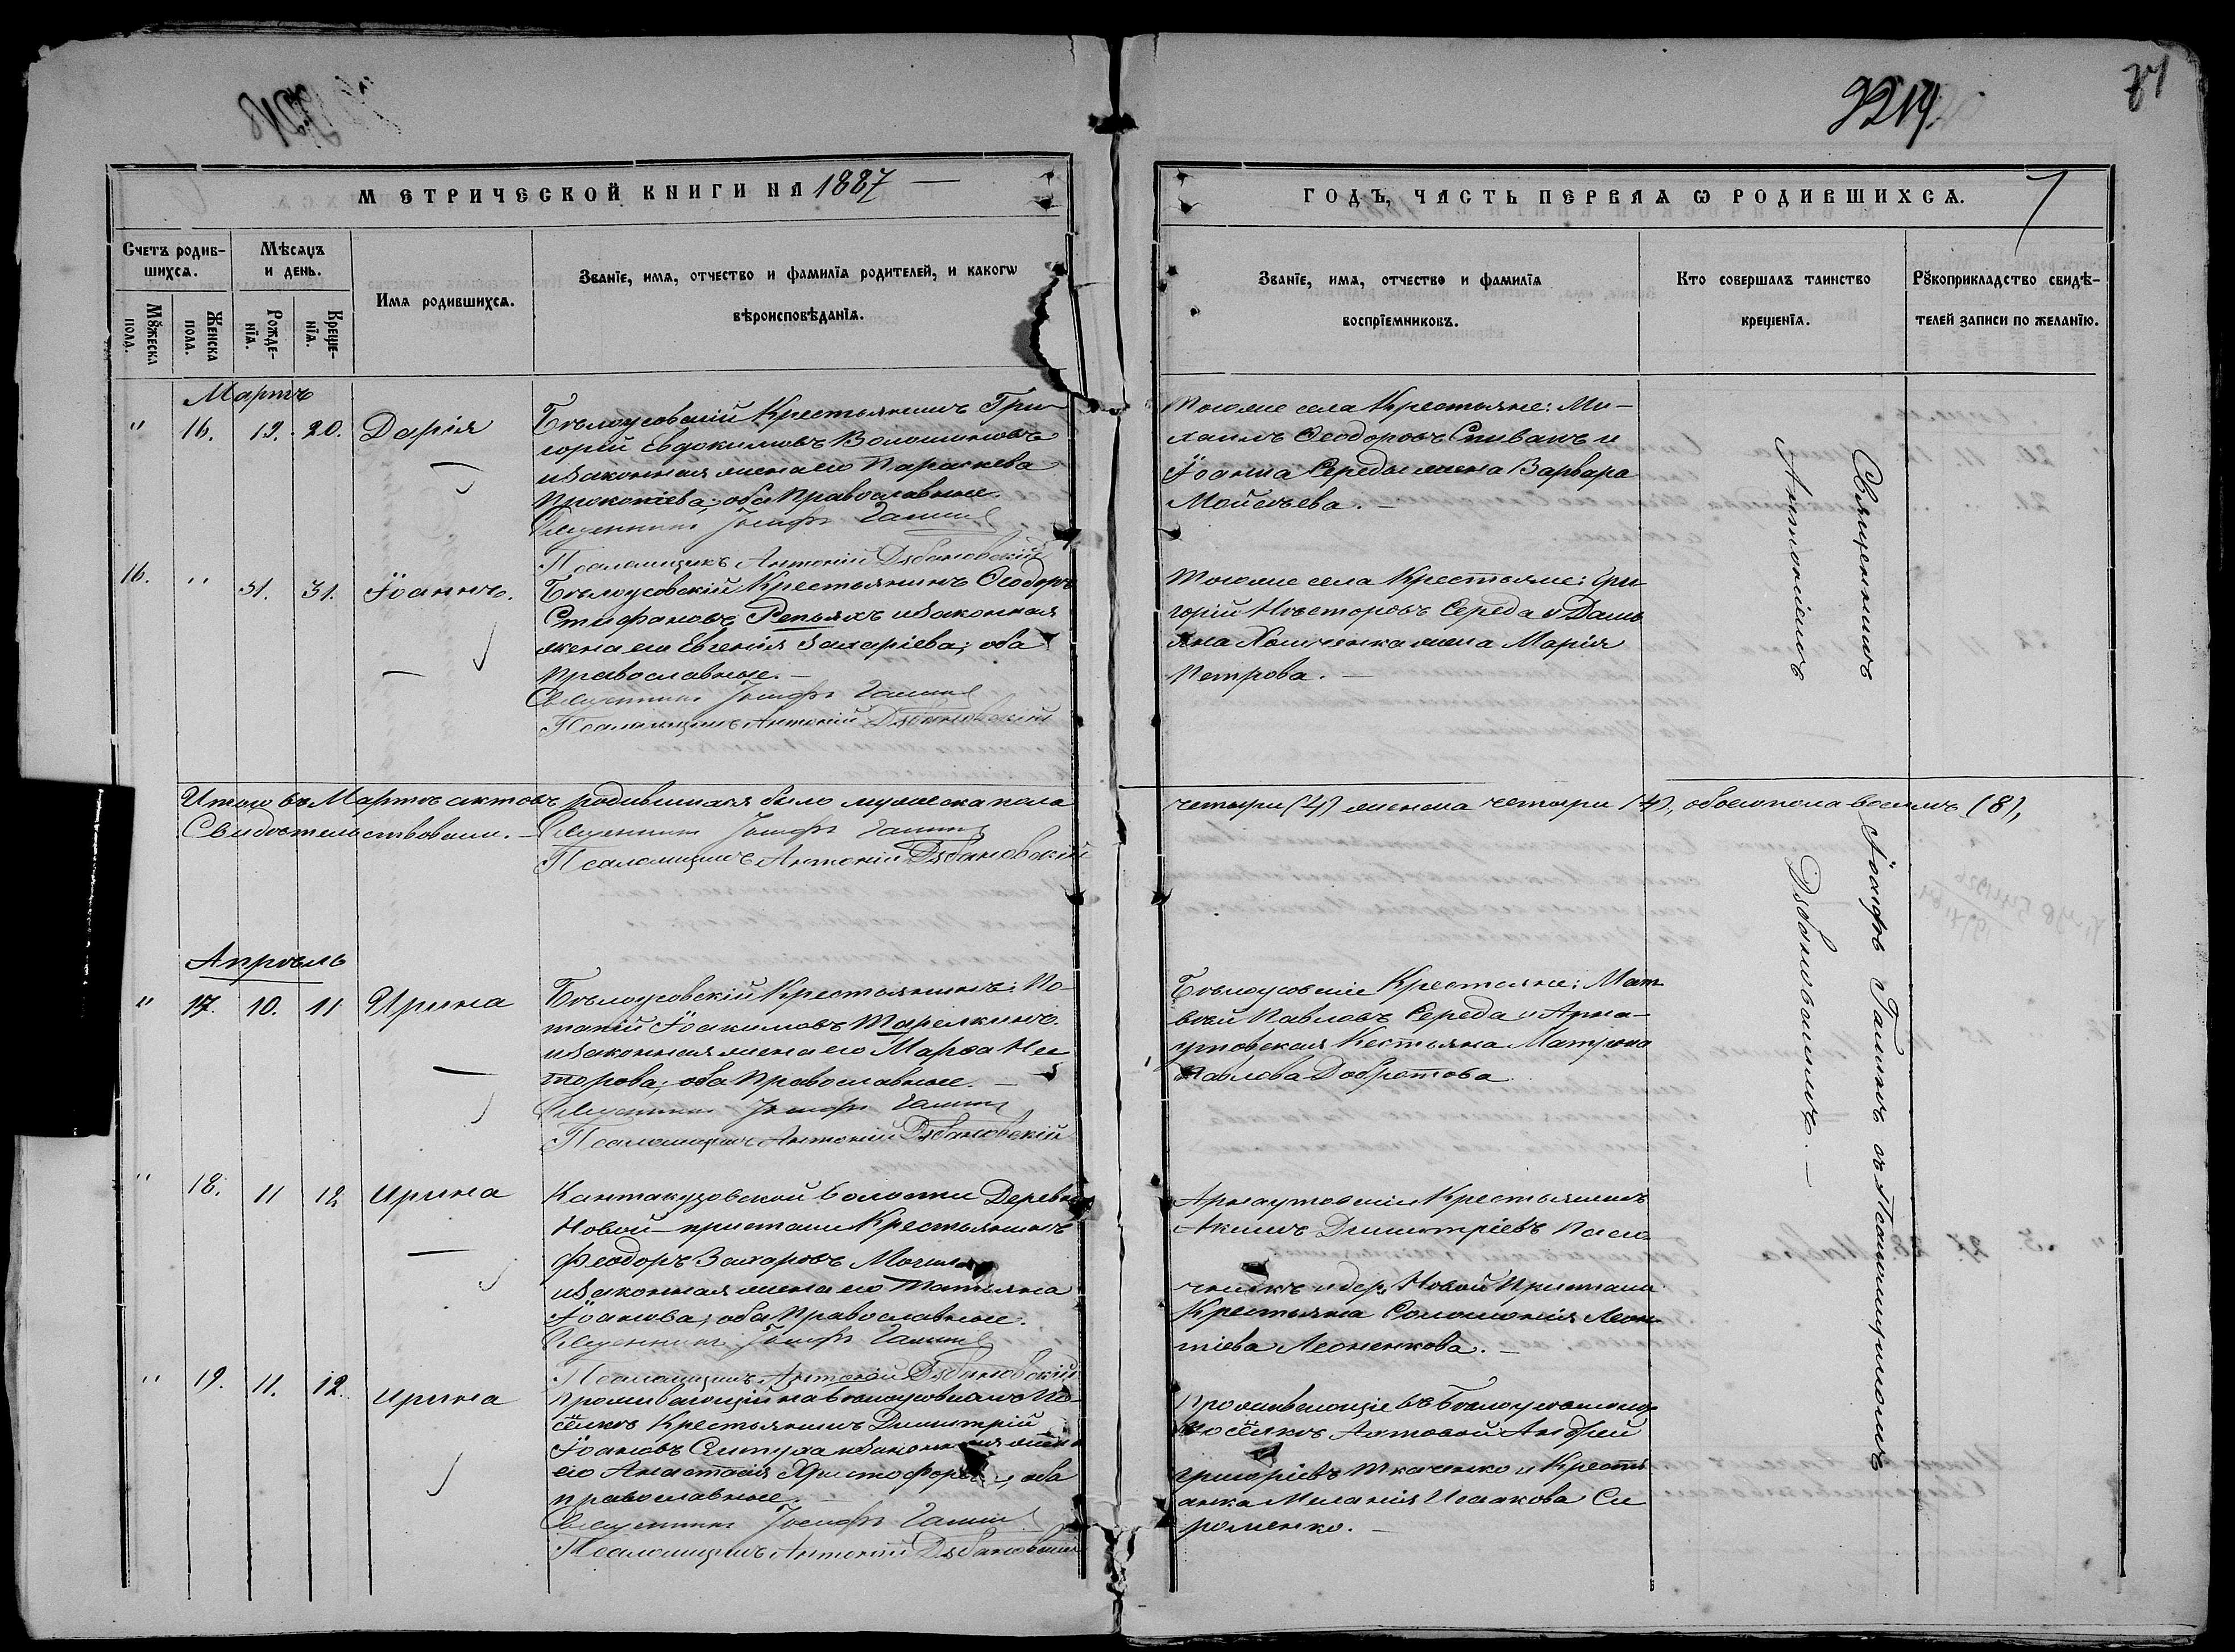 3219.
71
МЕТРИЧЕСКОЙ КНИГИ НА 1887
ГОДЪ, ЧАСТЬ ПЕРВАЯ Ѡ РОДИВШИХСЯ.
7
Счетъ родив-
шихся.
Мѣсяцъ
и день.
Мꙋжеска
пола.
Женска
пола.
Рожде-
нїя.
Креще-
нїя.
Имя родившихся.
Званїе, имя, отчество и фамилїя родителей, и какогѡ
вѣроисповѣданїя.
Званїе, имя, отчество и фамилїя
воспрїемниковъ.
Кто совершалъ таинство
крещенїя.
Рꙋкоприкладство свидѣ-
телей записи по желанїю.
Мартъ
" 16. 19. 20. Дарія
Бѣлоусовскій Крестьянинъ Гри-
горій Евдокимовъ Волошиновъ
и законная жена его Параскева
Прокопіева; оба Православные.
Священникъ Іосифъ Галинъ
Псаломщикъ Антоній Дзбановскій
Тогоже села Крестьяне: Ми-
хаилъ Ѳеодоровъ Спивакъ и
Іоанна Середы жена Варвара
Мойсѣева.
16. " 31. 31. Іоаннъ.
Бѣлоусовскій Крестьянинъ Ѳеодоръ
Стефановъ Репьяхъ и законная
жена его Евгенія Захаріева; оба
Православные.
Священникъ Іосифъ Галинъ
Псаломщикъ Антоній Дзбановскій
Тогоже села Крестьяне: Гри-
горій Несторовъ Середа и Дамь
яна жена Марія
Петрова.
Итого въ Мартѣ актовъ родившихся было мужеска пола
четыри (4) женска четыри (4), обоего пола восемь (8),
Свидѣтельствовали.
Священникъ Іосифъ Галинъ
Псаломщикъ Антоній Дзбановскій
Апрѣль
" 17. 10. 11 Ирина
Бѣлоусовскій Крестьянинъ: По-
тапій Іоакимовъ Тарелкинъ
и законная жена его Марѳа Нес
торова; оба Православные.
Священникъ Іосифъ Галинъ
Псаломщикъ Антоній Дзбановскій
Бѣлоусовскіе Крестьяне: Мат
вѣй Павловъ Середа и Арна-
утовская Кестьяна Матрона
Павлова Добротова
" 18. 11 12 Ирина
Кантакузовской волости Деревни
Новой-пристани Крестьянинъ
Феодоръ Захаровъ
и законная жена его Татьяна
Іоанова; оба Православные.
Священникъ Іосифъ Галинъ
Псаломщикъ Антоній Дзбановскій
Арнаутовскій Крестьянинъ
Акимъ Димитріевъ Пасе
чникъ и дер. Новой Пристани
Крестьянка Соломонія Леон-
тіева Леоненкова.
" 19. 11. 12. Ирина
Проживающій на Бѣлоусовскомъ По-
сёлкѣ Крестьянинъ Димитрій
Іоановъ и законная жена
его Анастасія Христофорова, оба
православные.
Священникъ Іосифъ Галинъ
Псаломщикъ Антоній Дзбановскій
Проживающіе въ Бѣлоусовскомъ
посёлкѣ Андрей
Григоріевъ Ткаченко и Кресть
янка Меланія Исаакова Си
роменко.
Священникъ Іосифъ Галинъ съ Псаломщикомъ
Антоніемъ Дзбановскимъ.